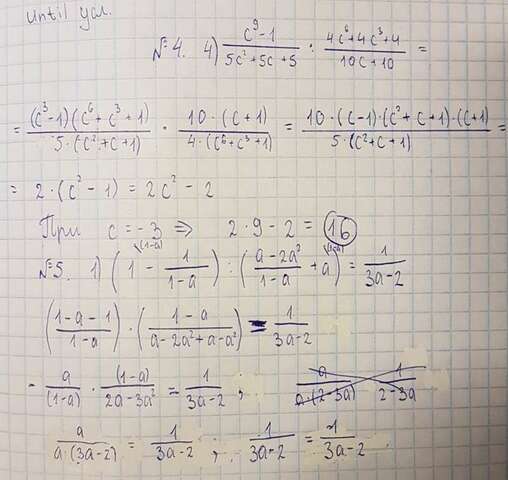 Until ycr.
№4. 4) (c^9-1)/(5c^2+5c+5) : (4c^6+4c^3+4)/(10c+10) =
= ((c^3-1)(c^6+c^3+1))/(5·(c^2+c+1)) · (10·(c+1))/(4·(c^6+c^3+1)) = (10·(c-1)·(c^2+c+1)·(c+1))/(5·(c^2+c+1)) =
= 2·(c^2-1) = 2c^2-2
При c=-3 ⇒ 2·9-2=16
№5. 1) (1^{(1-a)} - 1/(1-a)) : ((a-2a^2)/(1-a) + a^{(1-a)}) = 1/(3a-2)
((1-a-1)/(1-a)) · ((1-a)/(a-2a^2+a-a^2)) = 1/(3a-2)
- a/(1-a) · (1-a)/(2a-3a^2) = 1/(3a-2) ; a/(a·(2-3a)) 1/(2-3a)
a/(a·(3a-2)) = 1/(3a-2) ; 1/(3a-2) = 1/(3a-2)